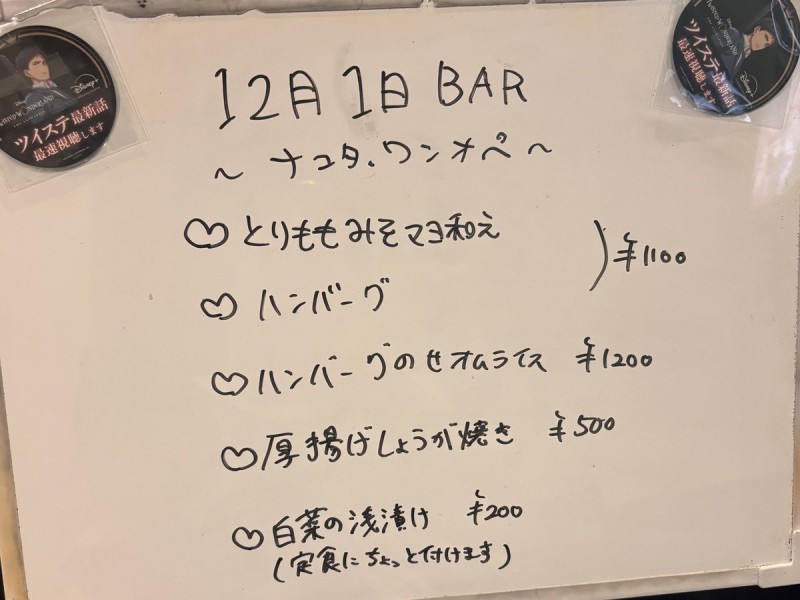 12月1日 BAR
～ナユタ、ワンオペ～
♡とりももみそマヨ和え
♡ハンバーグ
)¥1100
♡ハンバーグのせオムライス ¥1200
♡厚揚げしょうが焼き ¥500
♡白菜の浅漬け ¥200
(定食にちょっと付けます)
Disney+
ツイステ最新話
最速視聴します
Disney+
ツイステ最新話
最速視聴します